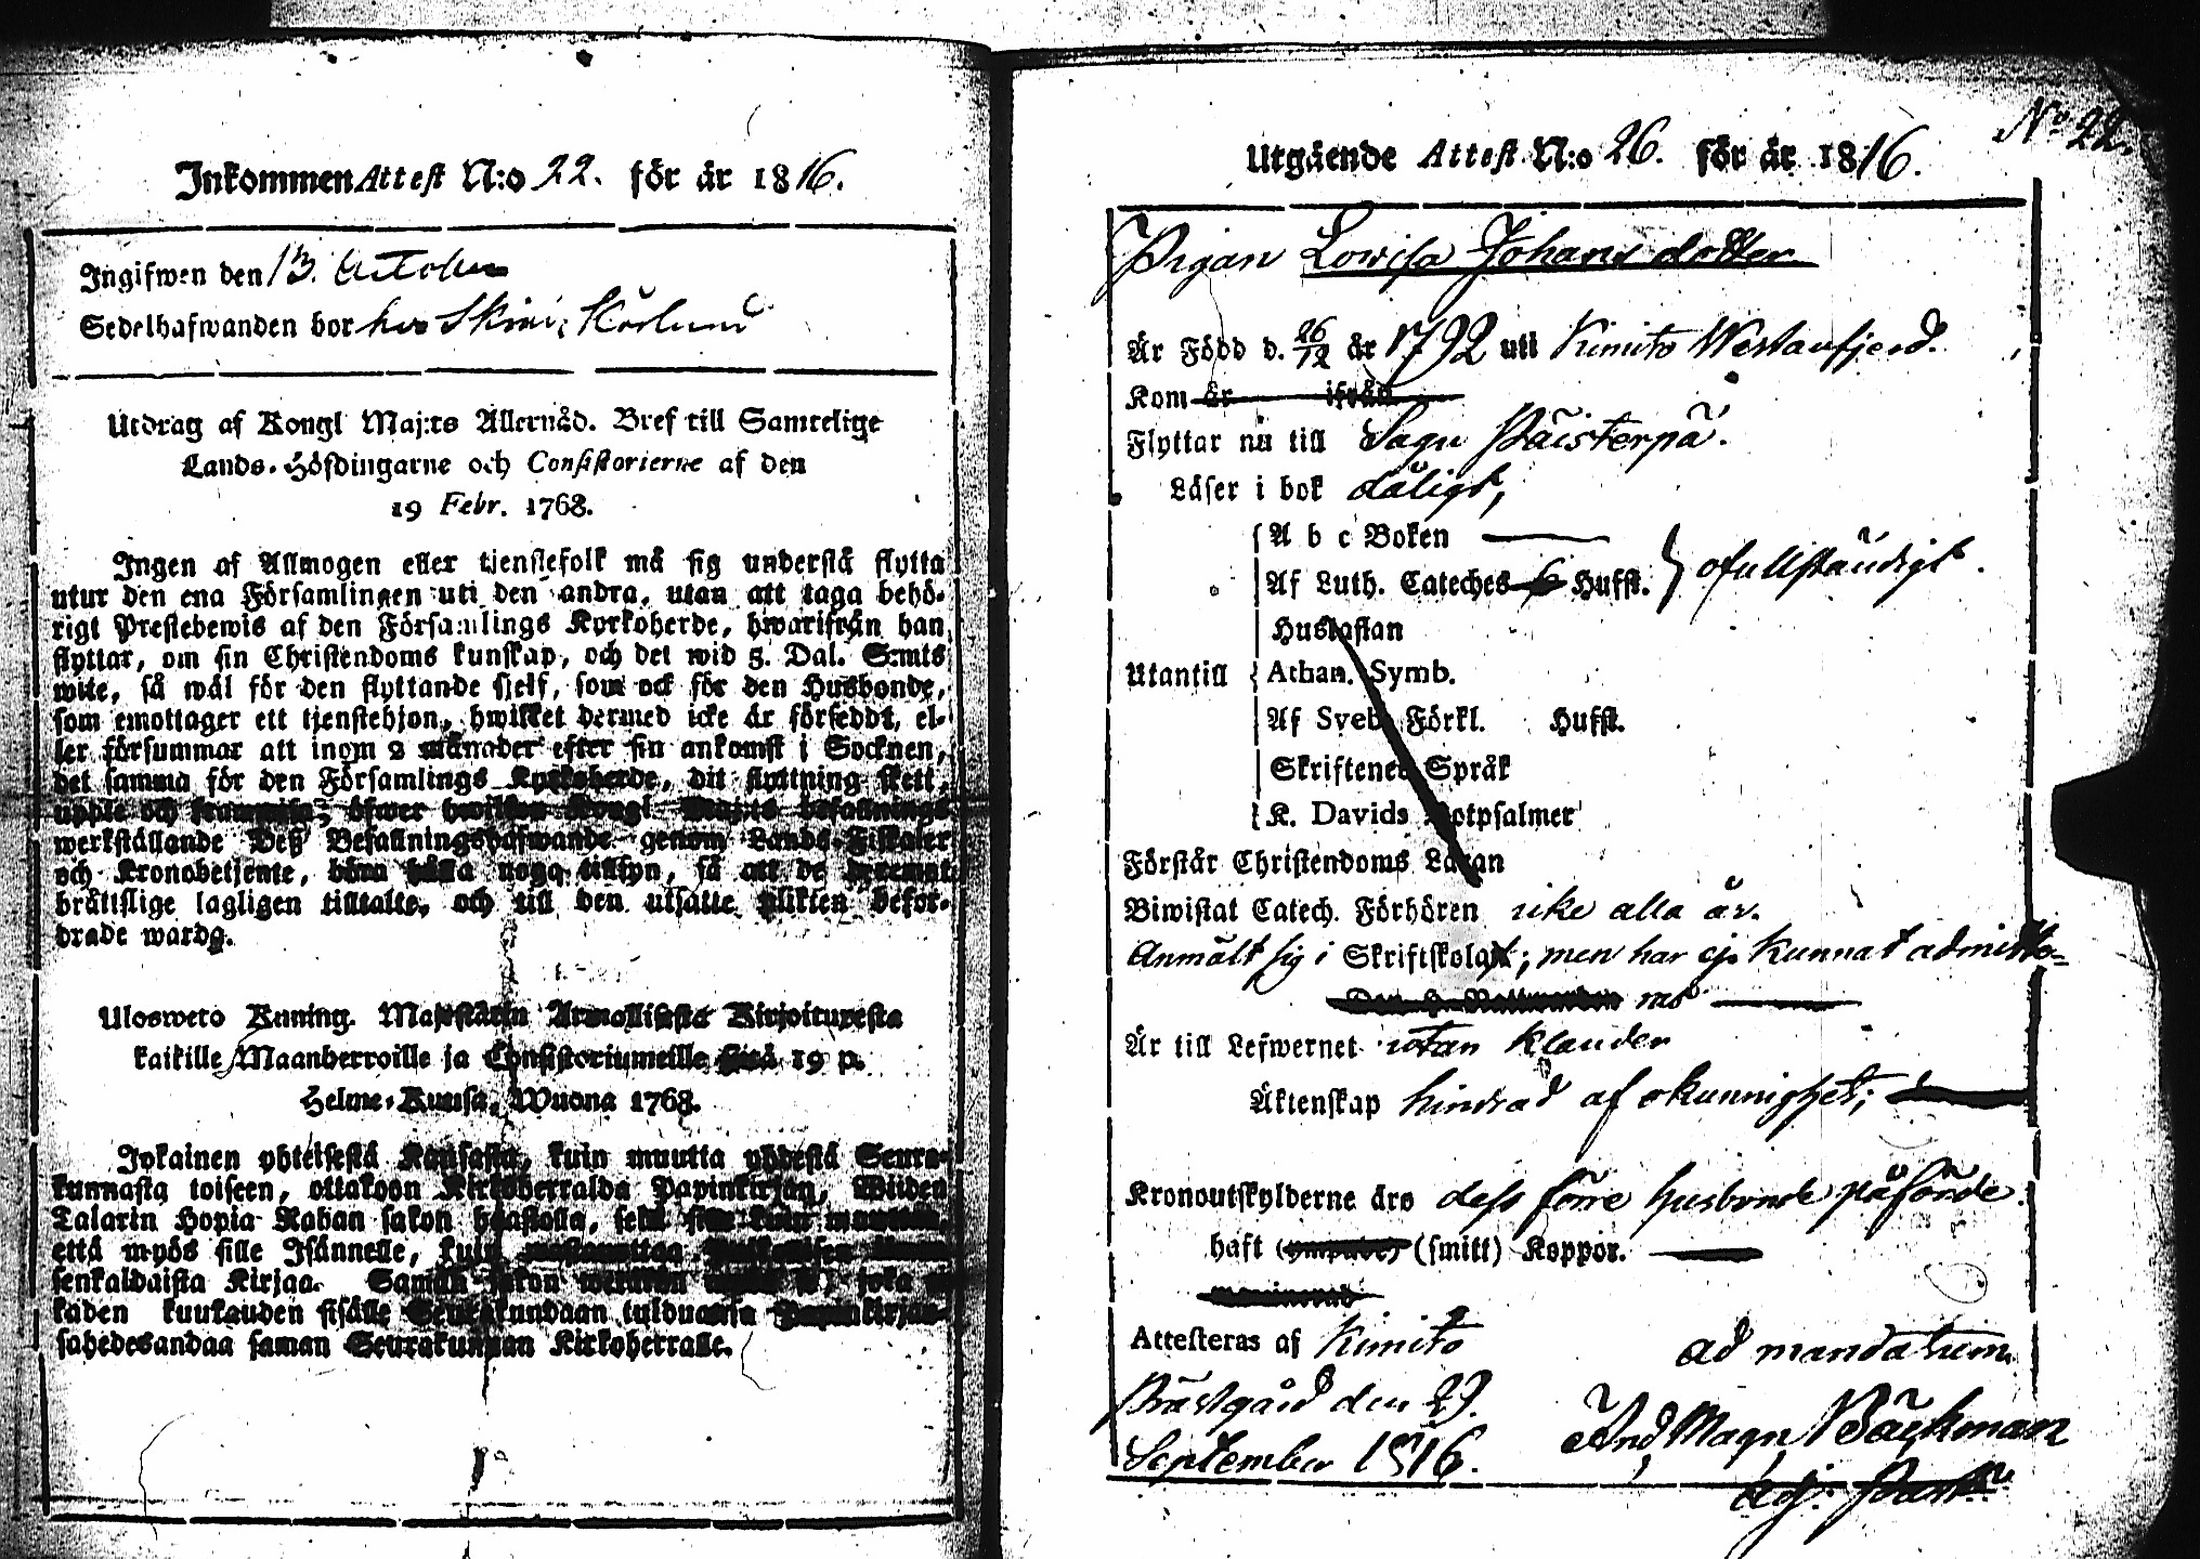 Inkommen Attest N:o 22. för år 1816.
Ingifwen den 13. October
Sedelhafwanden bor hos
Utdrag af Kongl Maj:ts Allernåd. Bref till Samtelige
Lands-Höfdingarne och Consistorierne af den
19 Febr. 1768.
Ingen af Allmogen eller tjenstefolk må sig understå flytta
utur den ena Församlingen uti den andra, utan att taga behö-
rigt Prestebewis af den Församlings Kyrkoherde, hwarifrån han
flyttar, om sin Christendoms kunskap, och det wid 5. Dal. S:mts
wite, så wäl för den flyttande sjelf, som ock för den Husbonde,
som emottager ett tjenstehjon, hwilket dermed icke är försedt, el-
ler försummar att inom 2 månader efter sin ankomst i Socknen,
det samma för den Församlings Kyrkoherde, dit flyttning skett,
upple och framwisa; öfwer hwilken Kongl Maj:ts befallnings
werkställande Deß Befallningshafwande genom Lands-Fiskaler
och Kronobetjente, böra hålla noga tillsyn, så att de deremot
bråttslige lagligen tilltalte, och till den utsatte plikten befor-
drade warda.
Ulosweto Kuning. Majestätin Armollisesta Kirjoituxesta
kaikille Maanherroille ja Consistoriumeille siitä 19 p.
Helme-Kuusa, Wuona 1768.
Jokainen yhteisestä Kansasta, kuin muutta yhdestä Seura-
kunnasta toiseen, ottakoon Kirkoherralda Papinkirjan, Wiiden
Talarin Hopia Rahan sakon haastolla, sekä
että myös sille Isännelle, kuin
senkaldaista Kirjaa. Saman sakon joka
kaden kuukauden sisälle Seurakundaan tulduansa Papinkirjan-
sa hedesandaa saman Seurakunnan Kirkoherralle.
No 22.
Utgående Attest N:o 26. för år 1816.
Pigan Lowisa Johans dotter
Är Född d. 26/12 år 1792 uti Kimito Westanfjerd.
Kom år ifrån
Flyttar nu till Sagu Päisterpä.
Läser i bok dåligt,
A b c Boken
Af Luth. Cateches 6 Hufst. } ofullständigt.
Hustaflan
Utantill Athan. Symb.
Af Sveb. Förkl. Hufst.
Skriftenes Språk
K. Davids Botpsalmer
Förstår Christendoms Läran
Biwistat Catech. Förhören icke alla år.
Anmält sig i Skriftskolan; men har ej kunnat admitte-
ras
Är till Lefwernet utan klander
Äktenskap hindrad af okunnighet;
Kronoutskylderne äro dess förre husbonde påförde.
haft (ympade) (smitt) Koppor.
Attesteras af Kimito
Prästgård den 29.
September 1816.
ad mandatum
And. Magn. Bäckman
adj. Past.